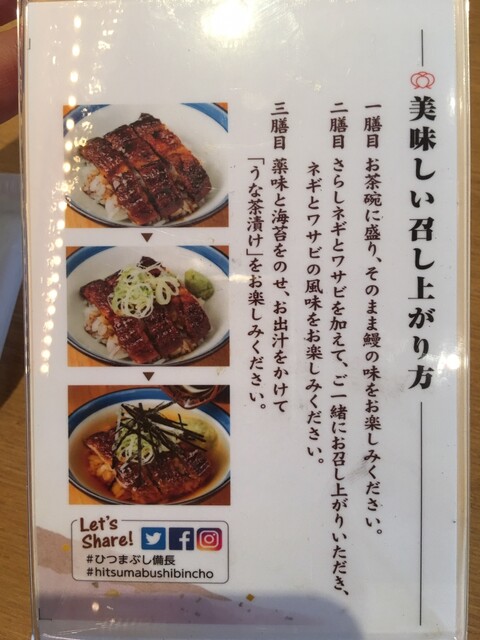 美味しい召し上がり方
一膳目 お茶碗に盛り、そのまま鰻の味をお楽しみください。
二膳目 さらしネギとワサビを加えて、ご一緒にお召し上がりいただき、
ネギとワサビの風味をお楽しみください。
三膳目 薬味と海苔をのせ、お出汁をかけて
「うな茶漬け」をお楽しみください。
Let's
Share!
#ひつまぶし備長
#hitsumabushibincho